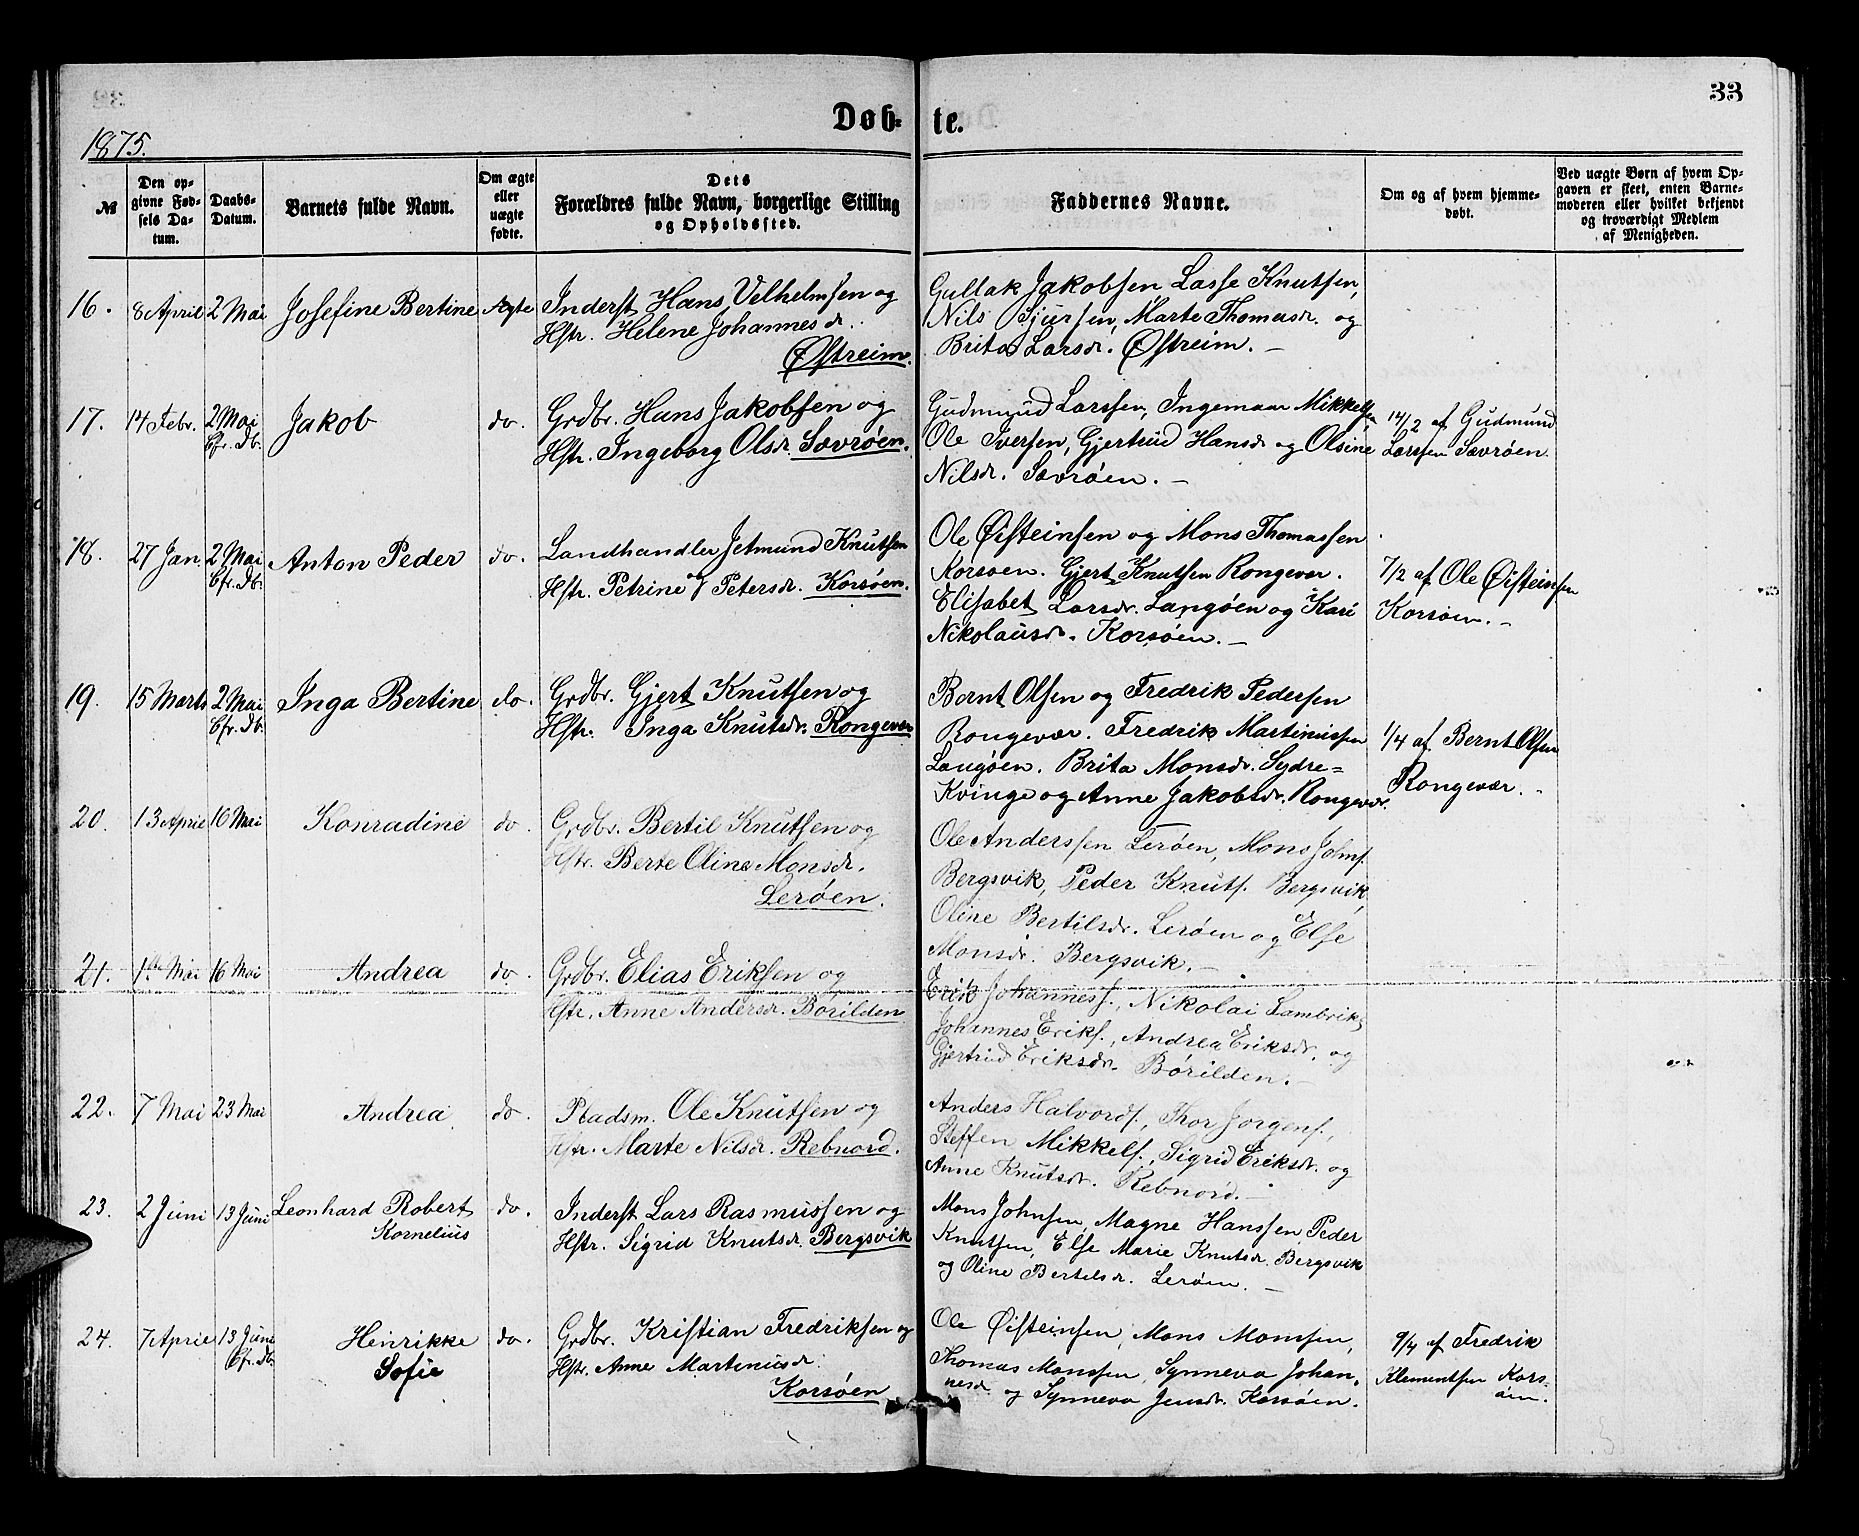 33
Døb- te.
1875.
№
Den opgivne Fødsels Datum.
Daabs-Datum.
Barnets fulde Navn.
Om ægte eller uægte fødte.
Dets Forældres fulde Navn, borgerlige Stilling og Opholdssted.
Faddernes Navne.
Om og af hvem hjemmedøbt.
Ved uægte Børn af hvem Opgaven er skeet, enten Barnemoderen eller hvilket bekjendt og troværdigt Medlem af Menigheden.
16. 8 April 2 Mai Josefine Bertine Ægte
Inderst Hans Velhelmsen og
Hstr. Helene Johannesdr.
Østreim.
Gullak Jakobsen Lasse Knutsen,
Nils Sjursen, Marte Thomasdr. og
Brita Larsdr. Østreim. –
17. 14 Febr. 2 Mai Cfr. Db. Jakob do.
Grdbr. Hans Jakobsen og
Hstr. Ingeborg Olsdr. Sævrøen.
Gudmund Larssen, Ingemaar Mikkelsen
Ole Iversen, Gjertrud Hansdr og Olsine
Nilsdr. Sævrøen. –
14/2 af Gudmund
Larssen Sævrøen.
18. 27 Jan. 2 Mai Cfr. Db. Anton Peder do.
Landhandler Jetmund Knutsen
og Hstr. Petrine J Petersdr. Korsøen.
Ole Øisteinsen og Mons Thomassen
Korsøen. Gjert Knutsen Rongevær.
Elisabet Larsdr. Langøen og Kari
Nikolausdr. Korsøen. –
7/2 af Ole Øisteinsen
Korsøen. –
19. 15 Marts 2 Mai Cfr. Db. Inga Bertine do.
Grdbr. Gjert Knutsen og
Hstr. Inga Knutsdr. Rongevær
Bernt Olsen og Fredrik Pedersen
Rongevær. Fredrik Martinussen
Langøen. Brita Monsdr. Sydre=
Kvinge og Anne Jakobsdr. Rongevær.
1/4 af Bernt Olsen
Rongevær. –
20. 13 April 16 Mai Konradine do.
Grdbr. Bertil Knutsen og
Hstr. Berte Oline Monsdr.
Lerøen.
Ole Anderssen Lerøen, Mons Johns.
Bergsvik, Peder Knuts. Bergsvik,
Oline Bertilsdr. Lerøen og Else
Monsdr. Bergsvik. –
21. 1ste Mai 16 Mai Andrea do.
Grdbr. Elias Eriksen og
Hstr. Anne Andersdr. Børilden
Erik Johanness., Nikolai Lambriks,
Johannes Eriks., Andrea Eriksdr. og
Gjertrud Eriksdr. Børilden. –
22. 7 Mai 23 Mai Andrea do.
Pladsm. Ole Knutsen og
Hstr. Marte Nilsdr. Rebnord.
Anders Halvords., Thor Jørgens.,
Steffen Mikkels., Sigrid Eriksdr. og
Anne Knutsdr. Rebnord. –
23. 2 Juni 13 Juni Leonhard Robert
Kornelius do.
Inderst Lars Rasmussen og
Hstr. Sigrid Knutsdr. Bergsvik
Mons Johnsen, Magne Hanssen, Peder
Knutsen, Else Marie Knutsdr. Bergsvik
og Oline Bertelsdr. Lerøen. –
24. 7 April 13 Juni Cfr. Db. Henrikke
Sofie do.
Grdbr. Kristian Fredriksen og
Hstr. Anne Martinusdr.
Korsøen
Ole Øisteinsen, Mons Monsen,
Thomas Monssen, Synneva Johan-
nesdr. og Synneva Jensdr. Korsøen.
9/4 af Fredrik
Klementsen Kors-
øen.